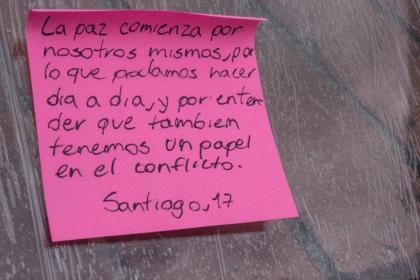 La paz comienza por
nosotros mismos, por
lo que podamos hacer
día a día, y por enten
der que tambiem
tenemos un papel
en el conflicto.
Santiago, 17